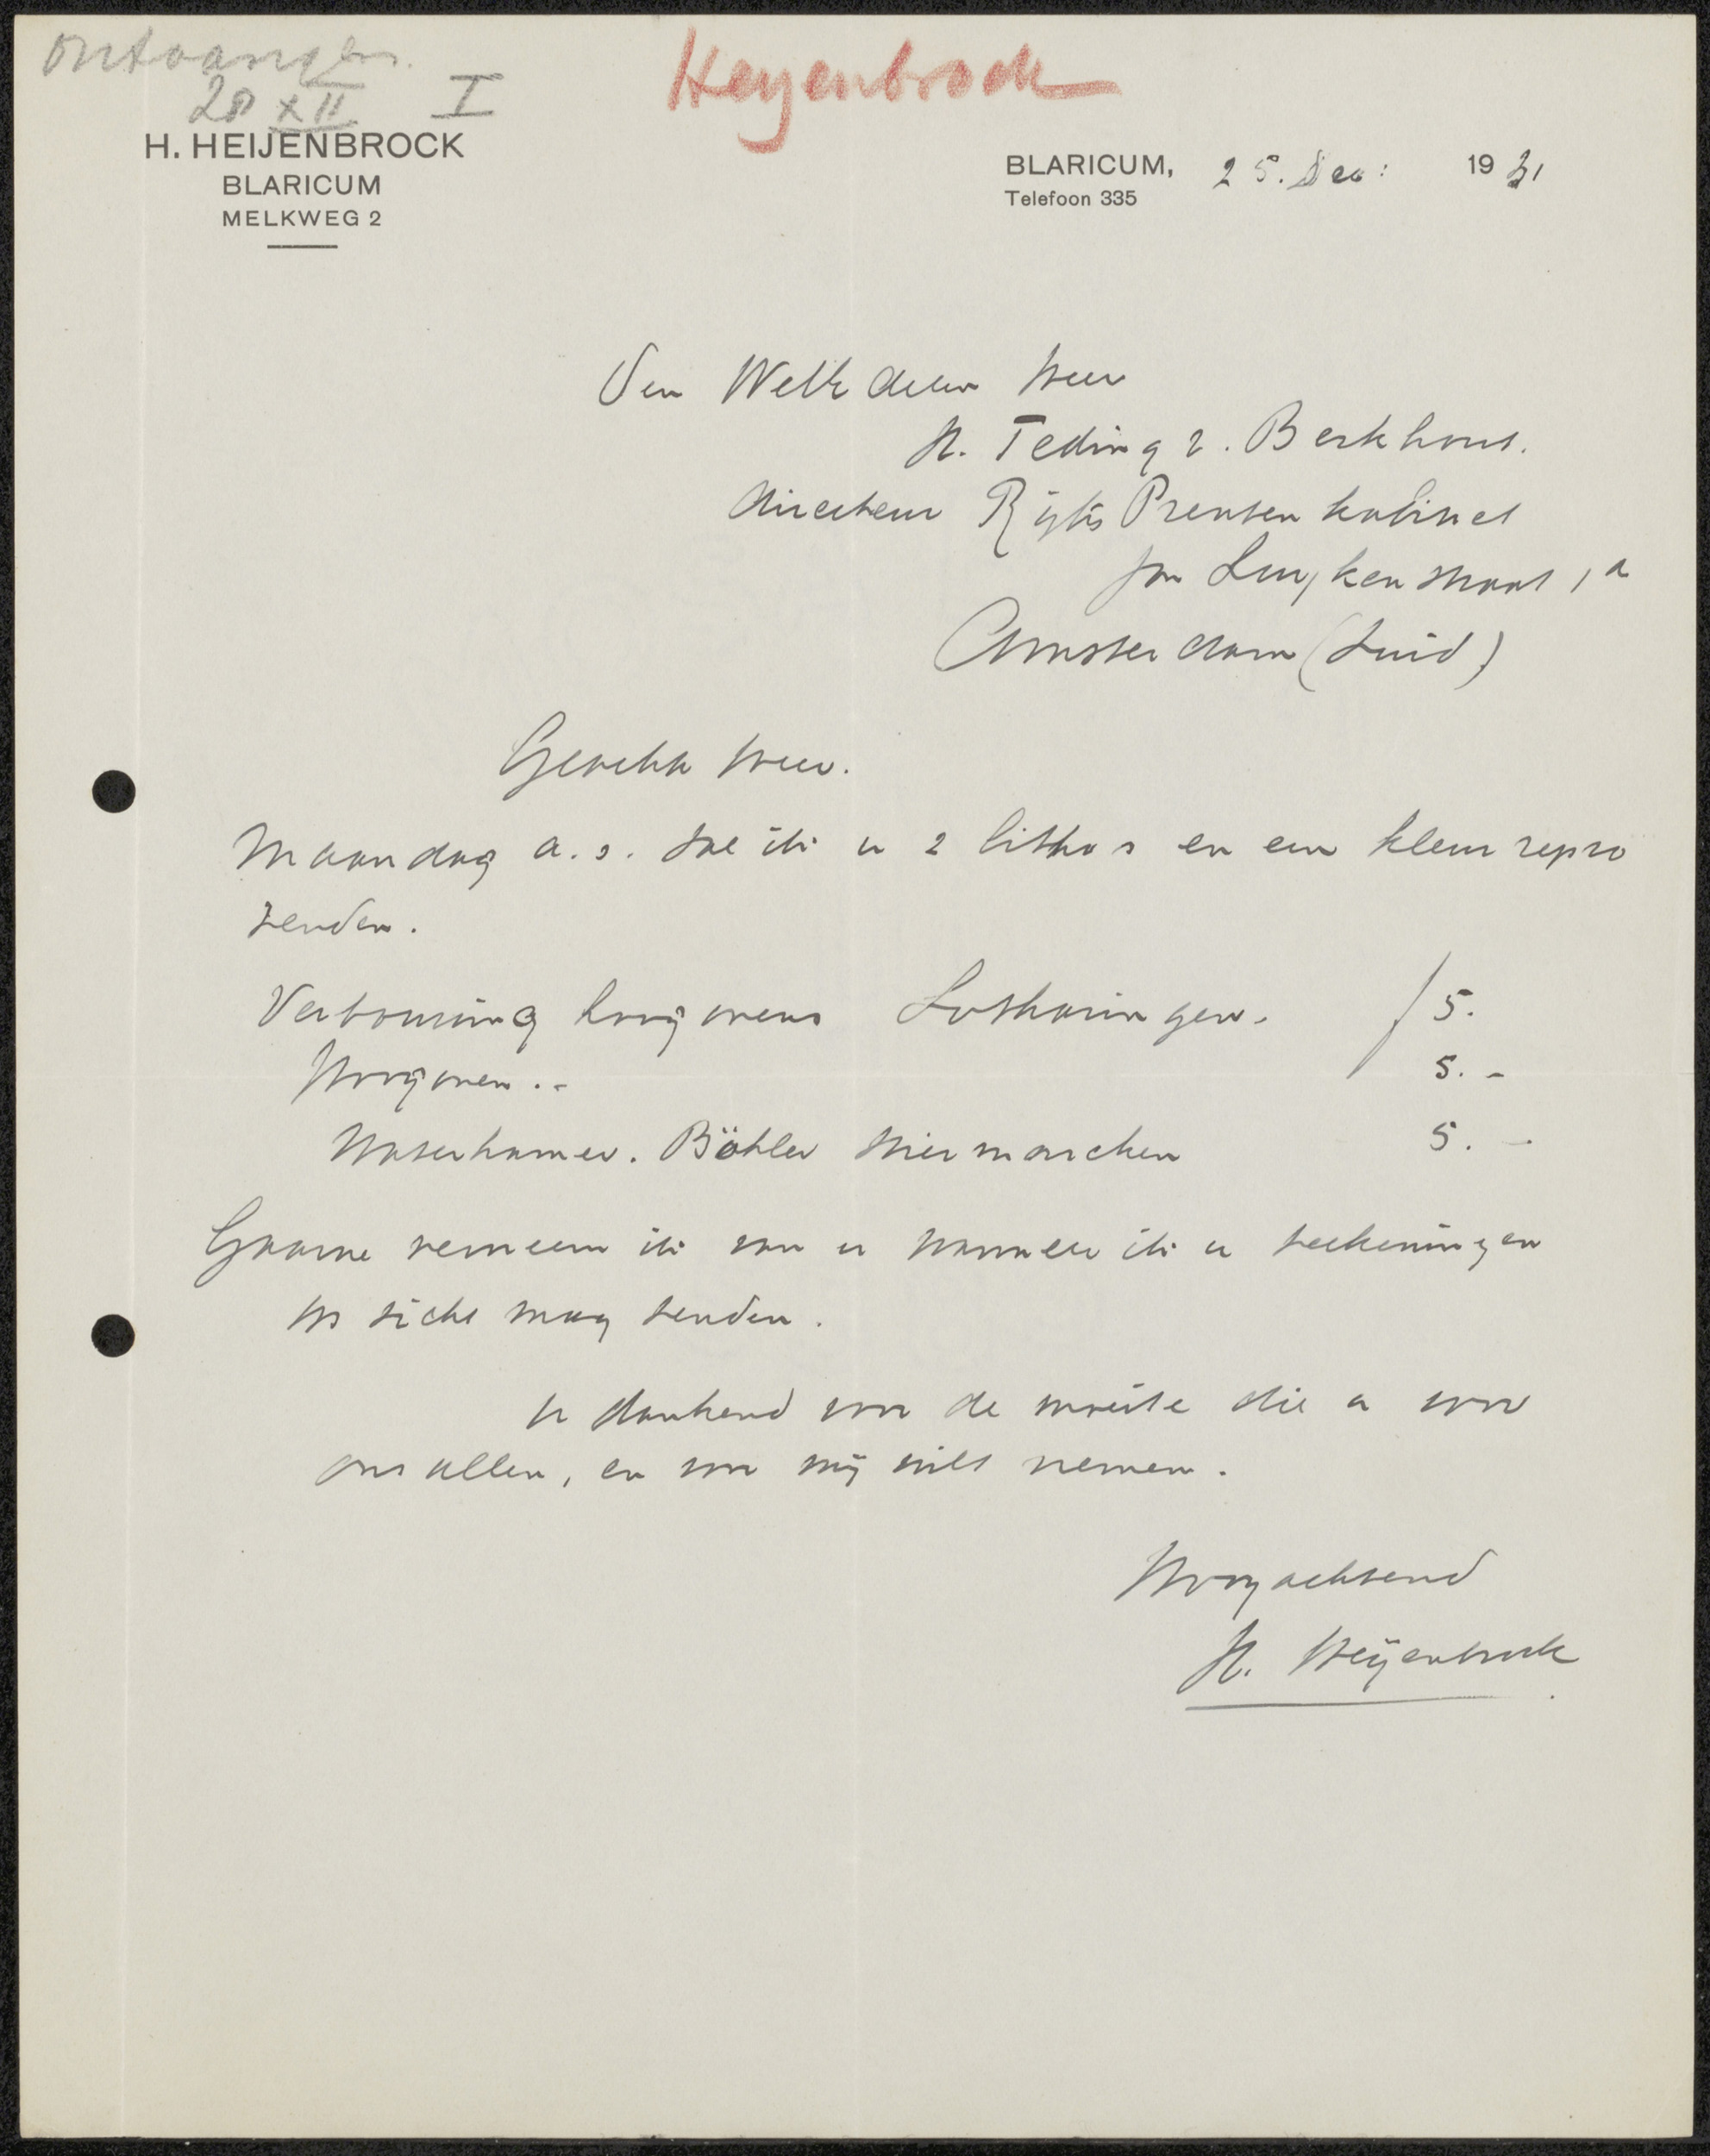 ontvangen.
28 XII I
Heyenbrock
H. HEIJENBROCK
BLARICUM
MELKWEG 2
BLARICUM, 25. Dec: 1931
Telefoon 335
Den WelEdelen Heer
H. Teding v. Berkhout.
Directeur Rijks Prentenkabinet
Jan Luykenstraat 1a
Amsterdam (Zuid)
Geachte Heer.
Maandag a.s. zal ik u 2 litho's en een kleur repro
zenden.
Verbouwing hoogovens Lotharingen. f 5.
Hoogoven.- 5.-
Waterhamer. Böhler Stiermarcken 5.-
Gaarne verneem ik van u wanneer ik u teekeningen
op zicht mag zenden.
U dankend voor de moeite die u voor
ons allen, en voor mij wilt nemen.
Hoogachtend
H. Heijenbrock